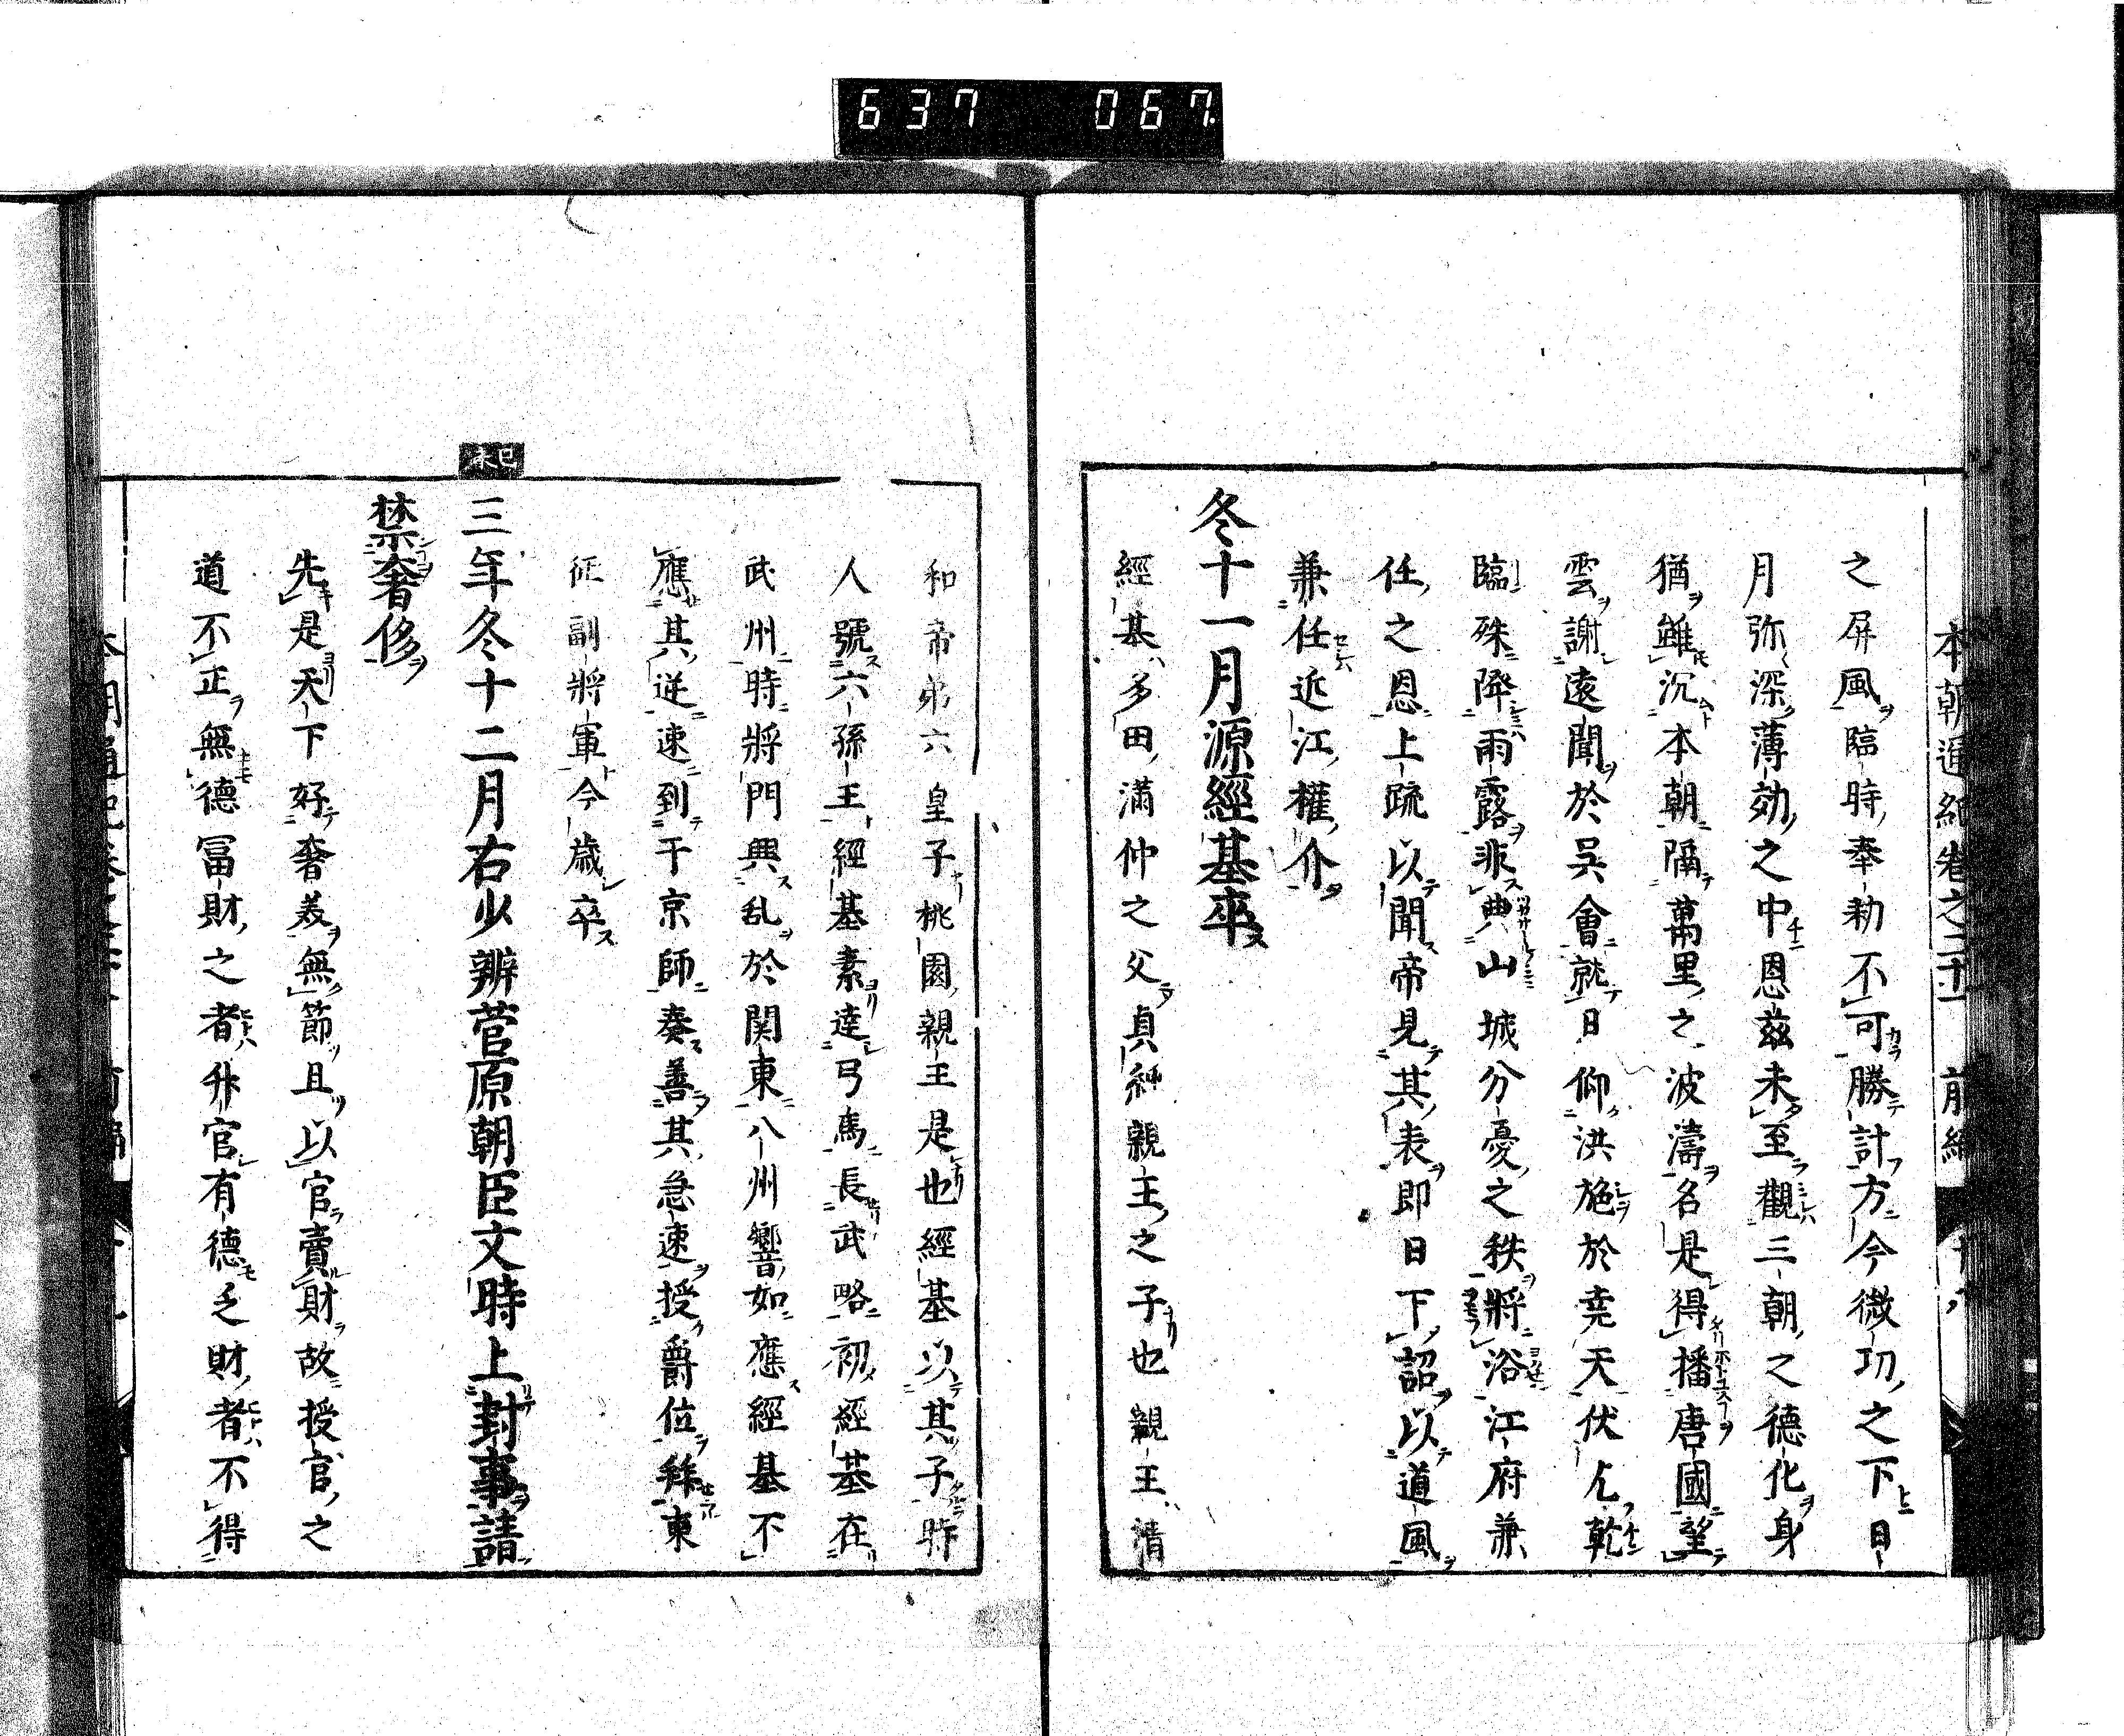 637 067
本朝通紀巻之二十一 前編
之屏風臨時奉勅不可勝計方今微功之下日
月弥深薄効之中恩茲未至觀三朝之德化身
猶雖沉本朝隔萬里之波濤名是得播唐國望
雲謝遠聞於呉會就日仰洪施於堯天伏乞乾
臨殊降雨露非典山城分憂之秩將浴江府兼
任之恩上疏以聞帝見其表即日下詔以道風
兼任近江權介
冬十一月源經基卒
經基多田滿仲之父貞純親王之子也親王清
和帝弟六皇子桃園親王是也經基以其子時
人號六孫王經基素達弓馬長武略初經基在
武州時將門興乱於関東八州響如應經基不
應其逆速到于京師奏善其急速授爵位稱東
征副將軍今歳卒
己未
三年冬十二月右少辨菅原朝臣文時上封事請
禁奢侈
先是天下好奢美無節且以官賣財故授官之
道不正無德冨財之者升官有德乏財者不得